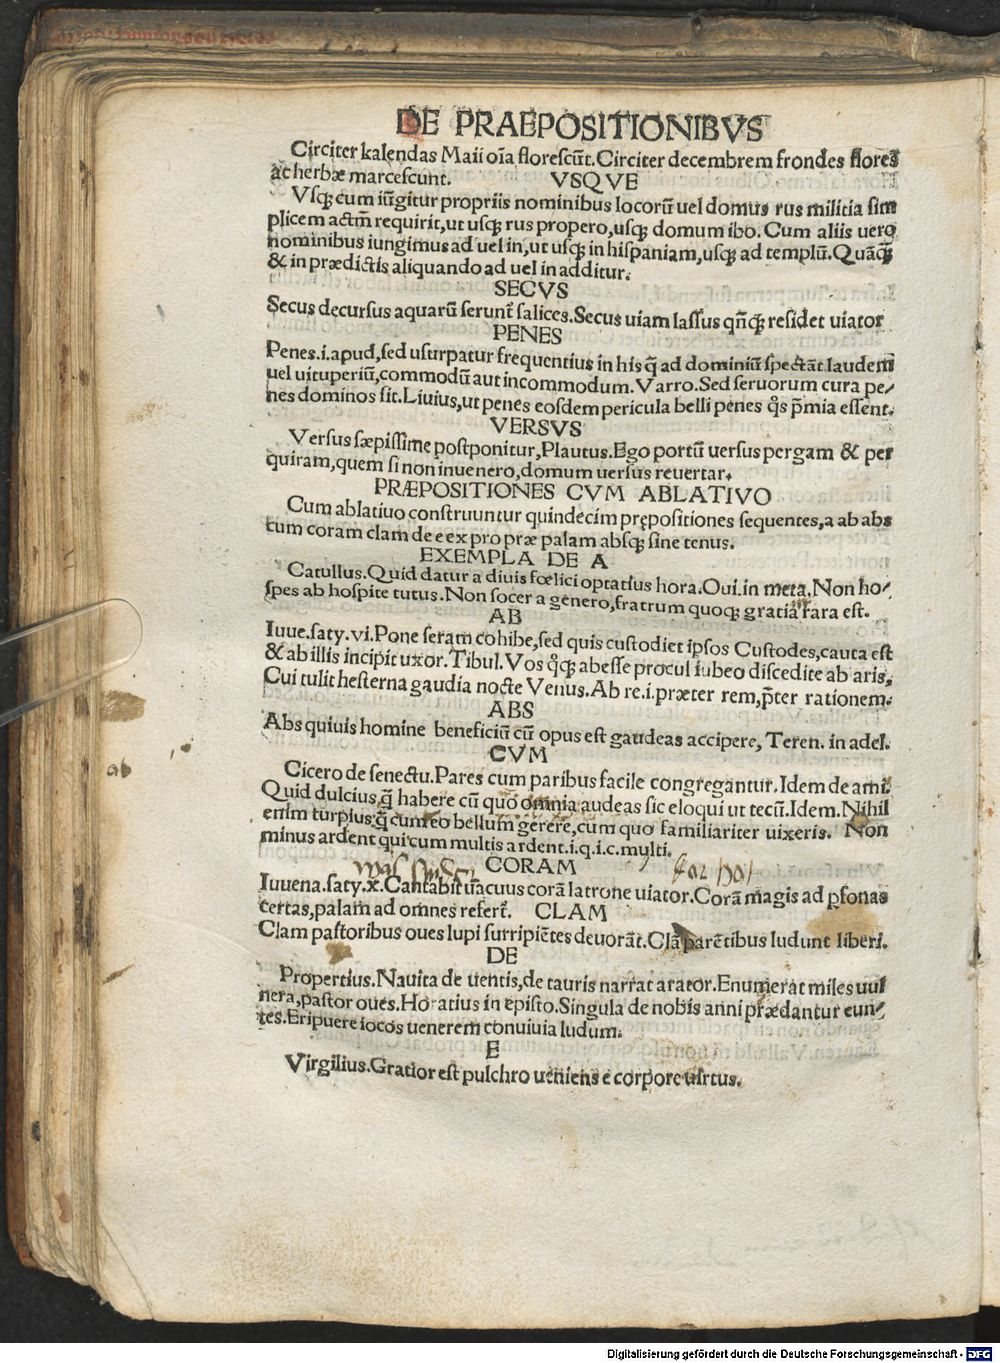 DE PRAEPOSITIONIBVS
Circiter kalendas Maii oĩa florescũt. Circiter decembrem frondes flores
ac herbæ marcescunt. VSQVE
Vsq; cum iũgitur propriis nominibus locorũ uel domus rus militia sim
plicem actm̃ requirit, ut usq; rus propero, usq; domum ibo. Cum aliis uero
nominibus iungimus ad uel in, ut usq; in hispaniam, usq; ad templũ. Quãq;
& in prædictis aliquando ad uel in additur.
SECVS
Secus decursus aquarũ serunt̃ salices. Secus uiam lassus qñq; residet uiator
PENES
Penes .i. apud, sed usurpatur frequentius in his q̃ ad dominiũ spectãt laudem
uel uituperiũ, commodũ aut incommodum. Varro. Sed seruorum cura pe/
nes dominos sit. Liuius, ut penes eosdem pericula belli penes q̃s p̃mia essent.
VERSVS
Versus sæpissime postponitur, Plautus. Ego portũ uersus pergam & per
quiram, quem si non inuenero, domum uersus reuertar.
PRÆPOSITIONES CVM ABLATIVO
Cum ablatiuo construuntur quindecim prępositiones sequentes, a ab abs
cum coram clam de e ex pro præ palam absq; sine tenus.
EXEMPLA DE A
Catullus. Quid datur a diuis fœlici optatius hora. Oui. in meta. Non ho/
spes ab hospite tutus. Non socer a genero, fratrum quoq; gratia rara est.
AB
Iuue. saty. vi. Pone seram cohibe, sed quis custodiet ipsos Custodes, cauta est
& ab illis incipit uxor. Tibul. Vos q̃q; abesse procul iubeo discedite ab aris,
Cui tulit hesterna gaudia nocte Venus. Ab re .i. præter rem, p̃ter rationem.
ABS
Abs quiuis homine beneficiũ cũ opus est gaudeas accipere, Teren. in adel.
CVM
ab
Cicero de senectu. Pares cum paribus facile congregantur. Idem de ami.
Quid dulcius q̃ habere cũ quo omnia audeas sic eloqui ut tecũ. Idem. Nihil
enim turpius q̃ cum eo bellum gerere, cum quo familiariter uixeris. Non
minus ardent qui cum multis ardent .i. q. i. c. multi.
CORAM
Iuuena. saty. x. Cantabit uacuus corã latrone uiator. Corã magis ad p̱sonas
certas, palam ad omnes refert̃. CLAM
Clam pastoribus oues lupi surripiẽtes deuorãt. Clã parẽtibus ludunt liberi.
DE
Propertius. Nauita de uentis, de tauris narrat arator. Enumerat miles uul
nera, pastor oues. Horatius in episto. Singula de nobis anni prædantur eun/
tes. Eripuere iocos uenerem conuiuia ludum.
E
Virgilius. Gratior est pulchro ueniens e corpore uirtus.
Digitalisierung gefördert durch die Deutsche Forschungsgemeinschaft - DFG